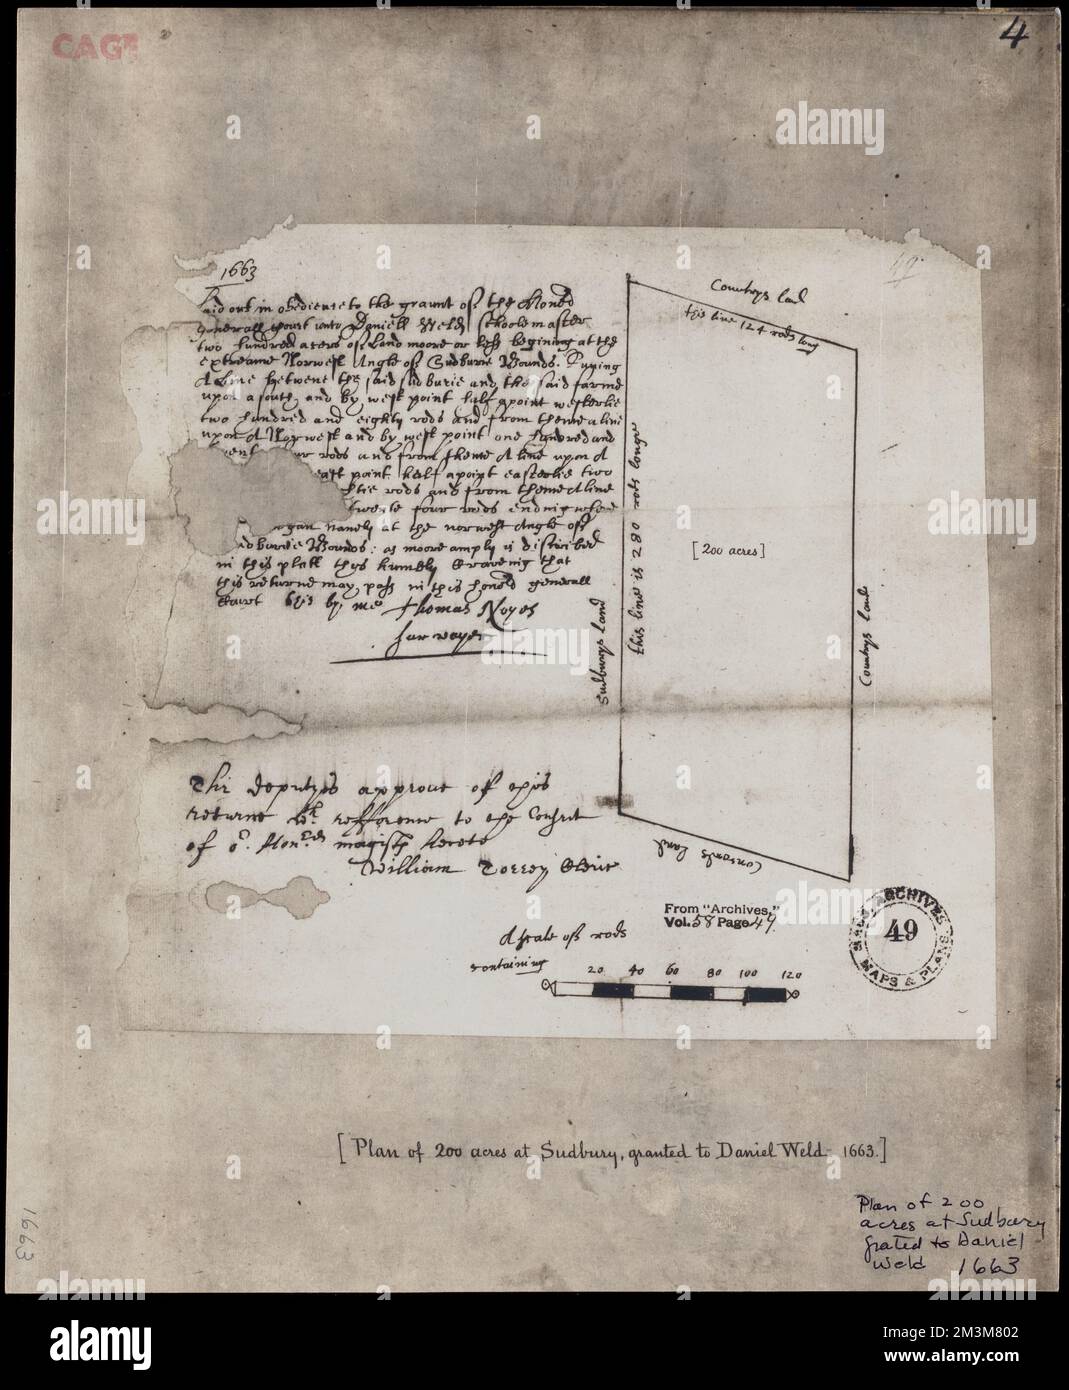 CAGE
4
49
1663
Laid out in obedience to the graunt of the Honrd
Generall Court unto Daniell Weld schoolemaster
two hundred acers of Land moore or less begining at the
extreame Norwest Angle of Sudburie Bounds. Runing
A Line betwene the said Sudburie and the said farme
upon a south and by west point half apoint westerlie
two hundred and eighty rods and from thence a line
upon A Norwest and by west point one hundred and
four rods and from thence A line upon A
east point half apoint easterlie two
rods and from thence A line
twente four rods ending where
namely at the norwest Angle of
Bounds: as moore amply is discribed
in this platt thus humbly Craveing that
this returne may pass in this honrd generall
Court by me Thomas Noyes
survayer
Countrys land
this line 124 rods long
this line is 280 rods longe
Sudburys Land
[200 acres]
Countrys land
Land
The deputyes approve of this
returne wth refference to the Consent
of or Honrd magistr hereto
William Torrey Cleric
From "Archives,"
Vol. 58 Page 49
MASS. ARCHIVES
49
MAPS & PLANS
A scale of rods
containing
20 40 60 80 100 120
[Plan of 200 acres at Sudbury, granted to Daniel Weld - 1663.]
Plan of 200
acres at Sudbury
grated to Daniel
Weld 1663
1663
alamy
Image ID: 2M3M802
www.alamy.com